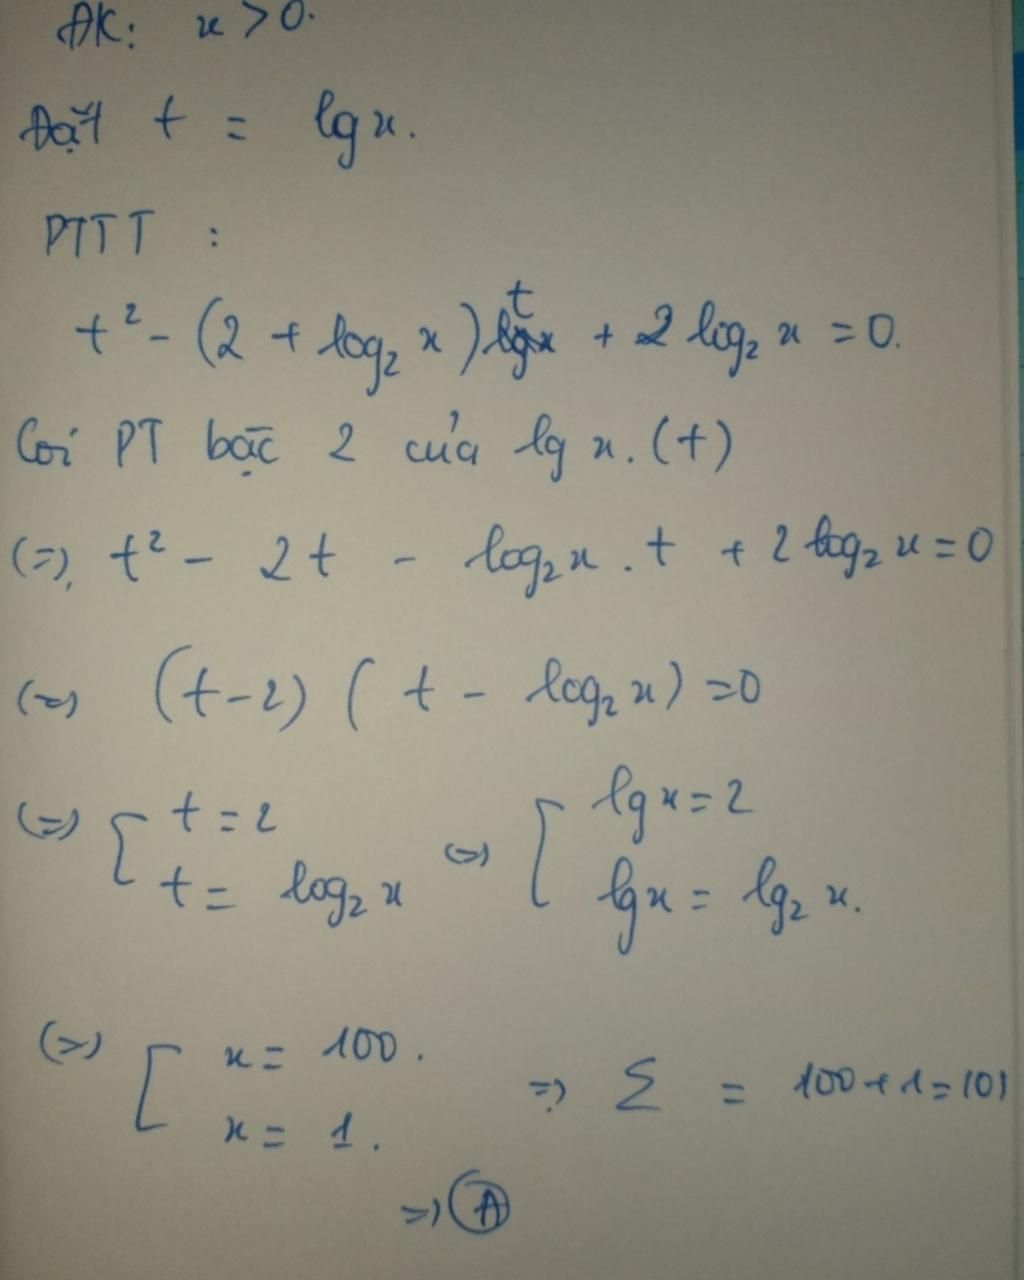 ĐK: x > 0.
Đặt t = lg x.
PTTT :
t² - (2 + log₂ x) t + 2 log₂ x = 0.
Coi PT bậc 2 của lg x. (t)
(=), t² - 2t - log₂x . t + 2 log₂ x = 0
(=) (t-2) ( t - log₂ x) = 0
(=) [ t = 2 (=) [ lg x = 2
t = log₂ x lg x = lg₂ x.
(=) [ x = 100 .
x = 1 . => Σ = 100 + 1 = 101
=> A